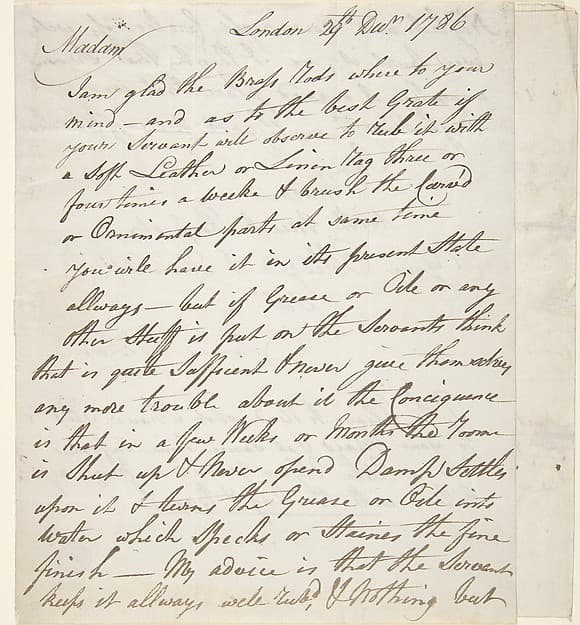 London 29th Decr. 1786
Madam
I am glad the Brass Rods where to your
mind — and as to the best Grate if
your Servant will observe to rub it with
a soft Leather or Linin Rag three or
four times a weeke & brush the Carv'd
or Ornimental parts at same time
you will have it in its present State
allways — but if Grease or Oile or any
other Stuff is put on the Servants think
that is quite Safficent & never give themselves
any more trouble about it the Conciquence
is that in a few Weeks or Months the Room
is Shut up & Never opend Damp Settles
upon it & turns the Grease or Oile into
Water which Specks or Staines the fine
finish — My advice is that the Servant
keeps it allways well rub'd, & Nothing but